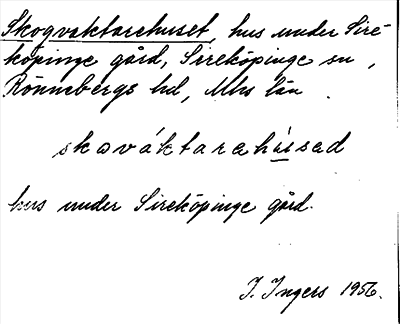 Skogvaktarehuset, hus under Sire-
köpinge gård, Sireköpinge sn,
Rönnebergs hd, Mhs län.
skováktarehúsad
hus under Sireköpinge gård.
I. Ingers 1956.